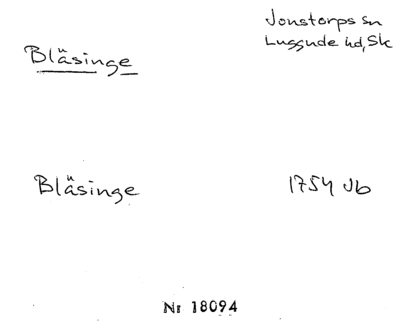 Jonstorps sn
Luggude hd, Sk
Bläsinge
Bläsinge 1754 Jb
Nr 18094